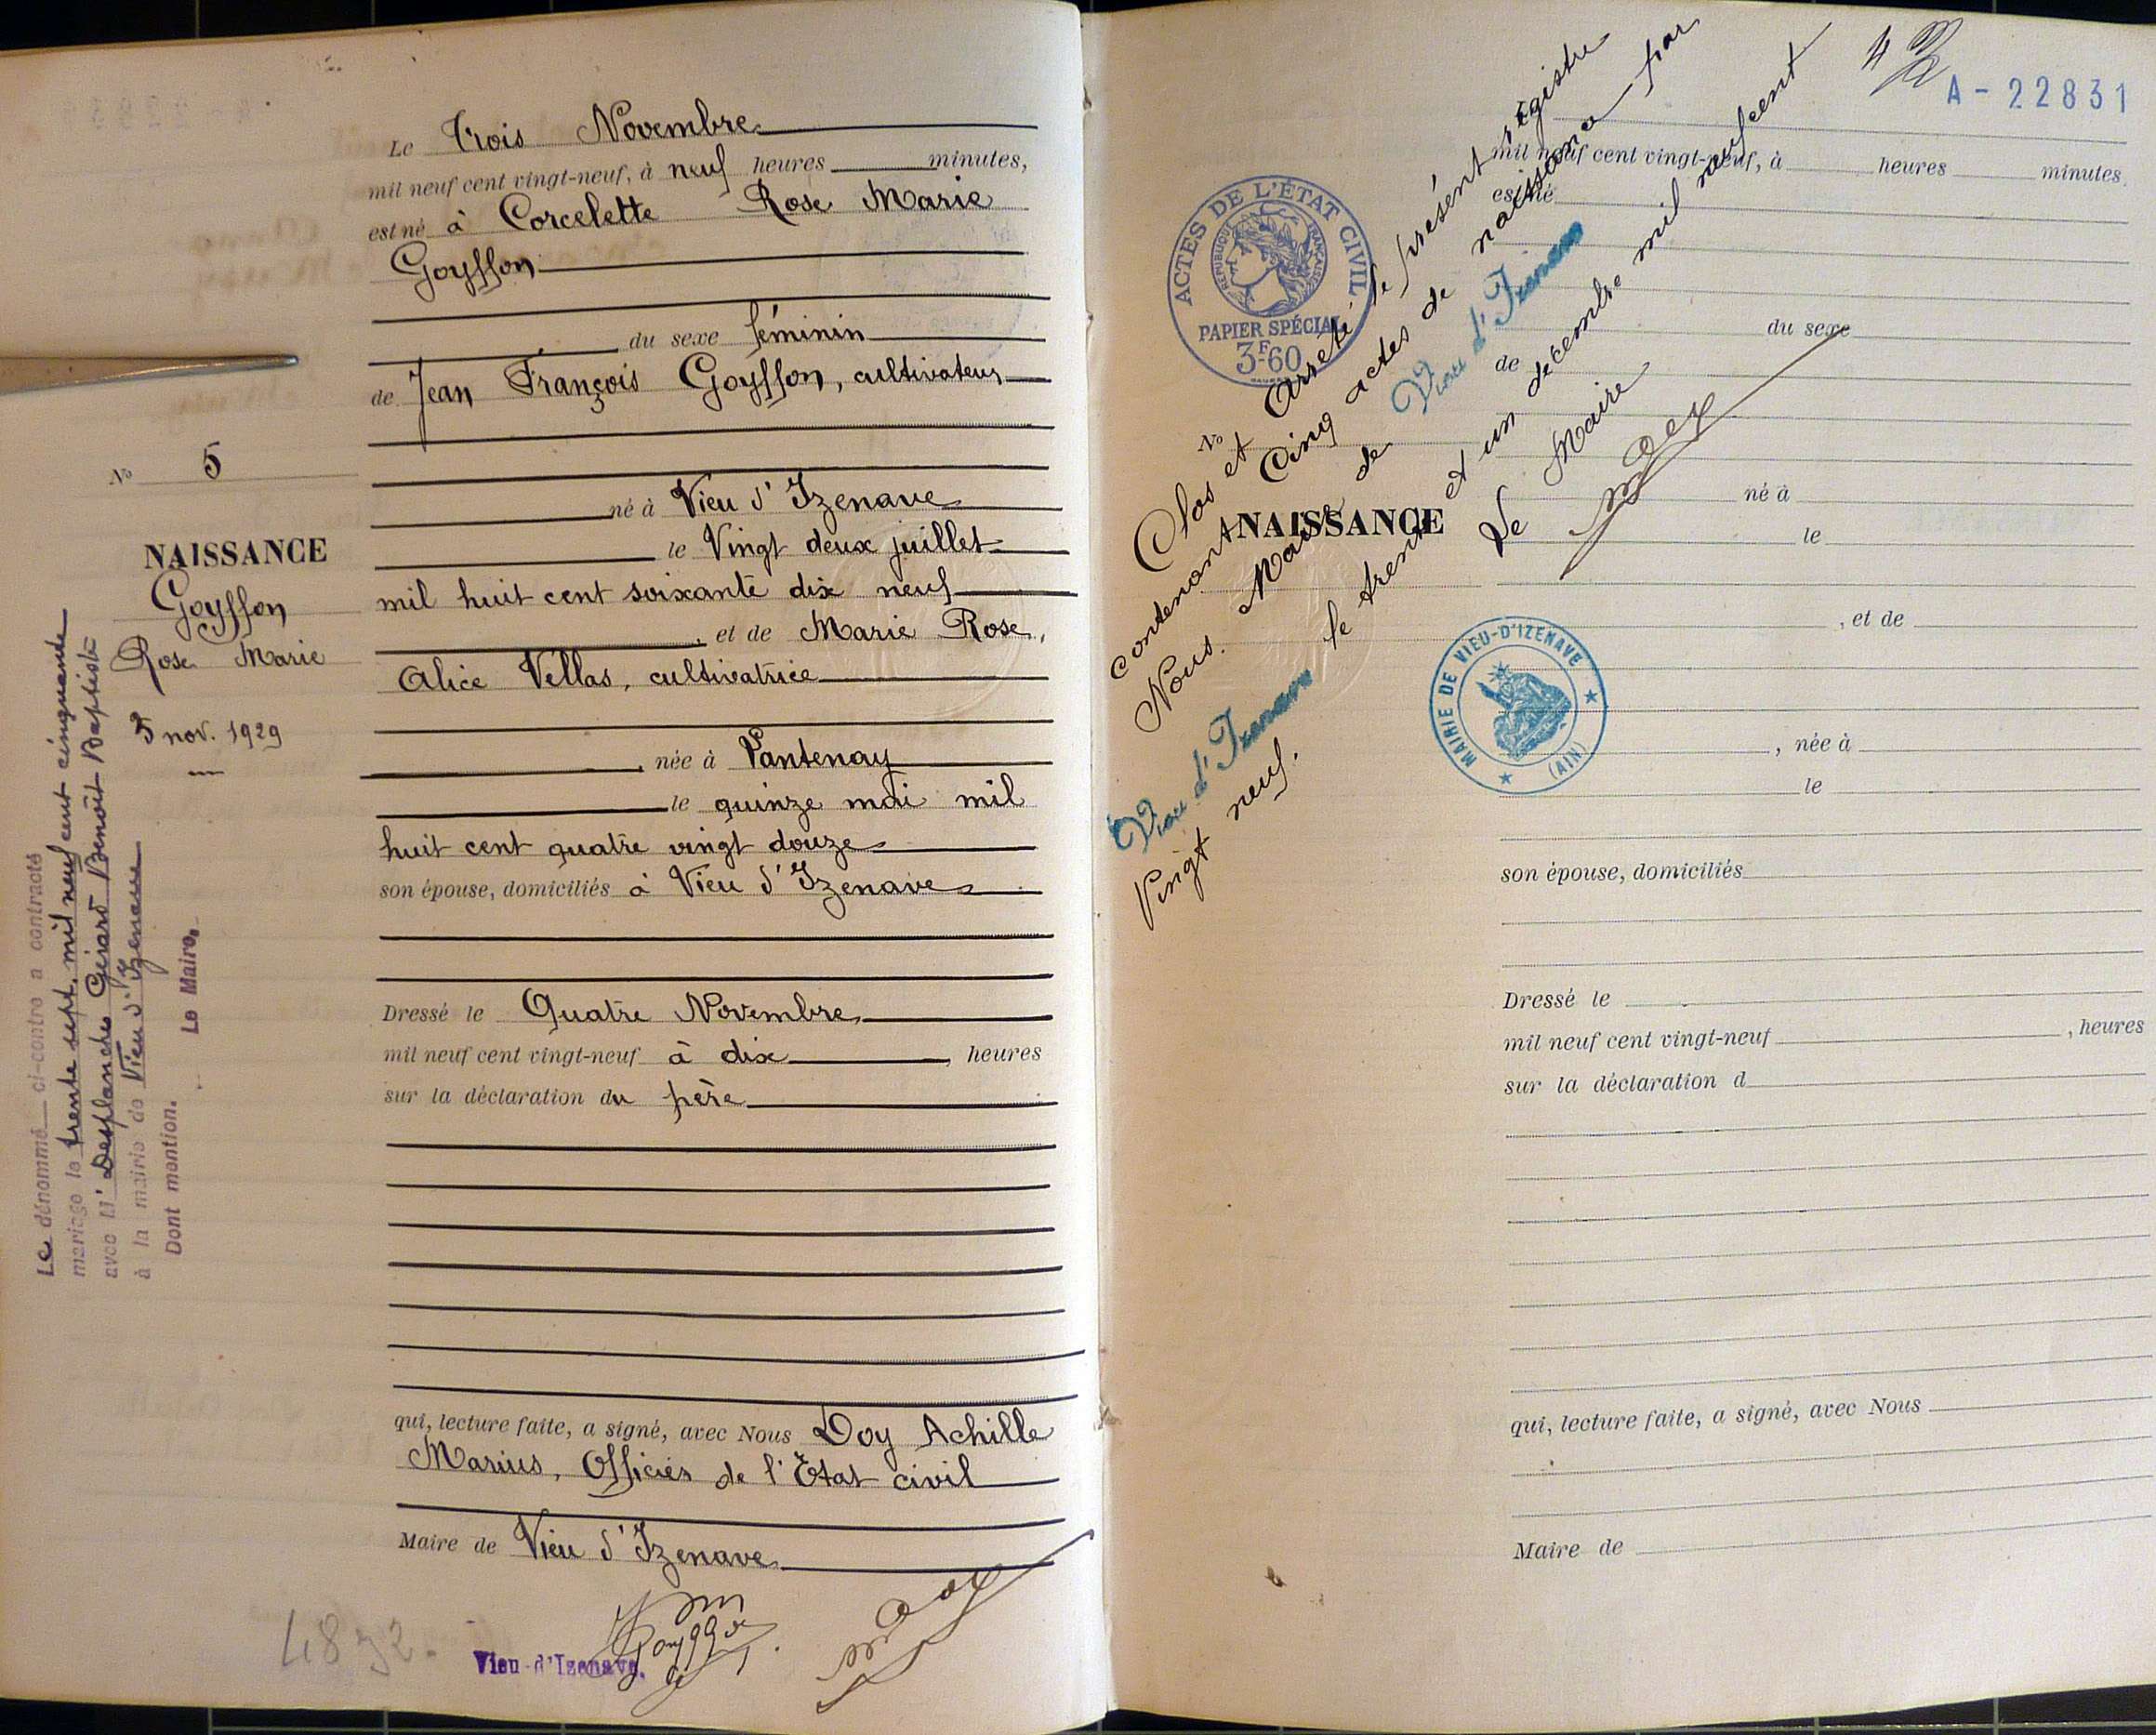 Le Trois Novembre
mil neuf cent vingt-neuf, à neuf heures minutes,
est né à Corcelette Rose Marie
Goyffon
du sexe féminin
de Jean François Goyffon, cultivateur
né à Vieu d'Izenave
le Vingt deux juillet
mil huit cent soixante dix neuf
, et de Marie Rose,
Alice Vellas, cultivatrice
, née à Lantenay
le quinze mai mil
huit cent quatre vingt douze
son épouse, domiciliés à Vieu d'Izenave
Dressé le Quatre Novembre
mil neuf cent vingt-neuf à dix , heures
sur la déclaration du père
qui, lecture faite, a signé, avec Nous Doy Achille
Marius, Officier de l'Etat civil
Maire de Vieu d'Izenave
Vieu-d'Izenave.
No 5
NAISSANCE
Goyffon
Rose Marie
3 nov. 1929
Le dénommé ci-contre a contracté
mariage le trente sept. mil neuf cent cinquante
avec Mr Desplanches Gérard Benoît Baptiste
à la mairie de Vieu d'Izenave
Dont mention. Le Maire,
A-22831
mil neuf cent vingt-neuf, à heures minutes,
est né
ACTES DE L'ÉTAT CIVIL
RÉPUBLIQUE FRANÇAISE
PAPIER SPÉCIAL
3F60
No
NAISSANCE
Clos et Arrêté le présent régistre
contenant Cinq actes de naissance par
Nous. Maire de Vieu d'Izenave
Vieu d'Izenave le trente et un décembre mil neuf cent
Vingt neuf.
Le Maire
MAIRIE DE VIEU-D'IZENAVE
(AIN)
du sexe
de
né à
le
, et de
, née à
le
son épouse, domiciliés
Dressé le
mil neuf cent vingt-neuf , heures
sur la déclaration d
qui, lecture faite, a signé, avec Nous
Maire de